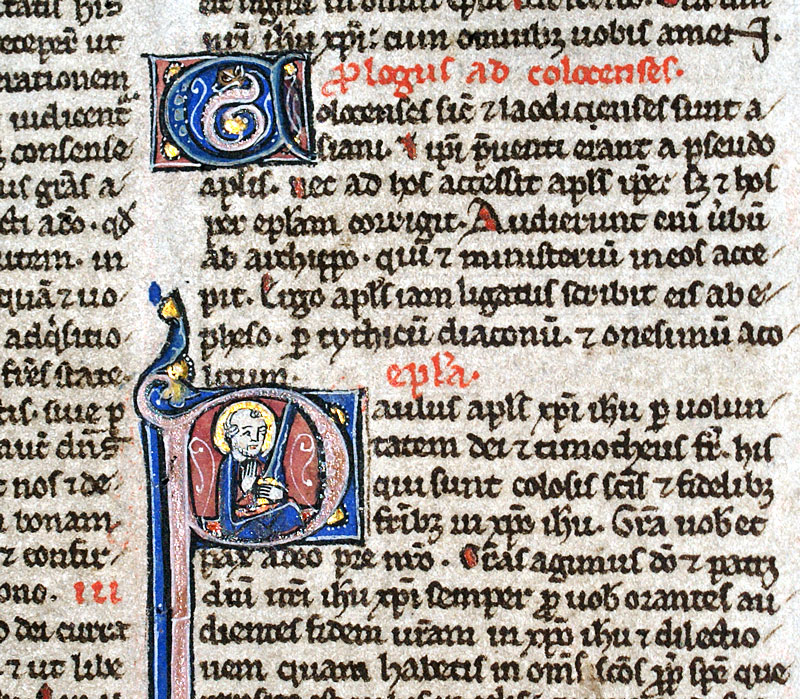 tatis his
ceteper ut
rationem
iudicent
consense
us gr̃as a
cti a dõ. qđ
utem. in
quã ⁊ uo
adq̃sitio
fr̃es state
siue p̲
nos ⁊ de
bonam
⁊ confir
ono. III
dei curra
⁊ ut libe
nr̃i ihu xp̃i: cum omnibꝫ uobis amen.
Prologus ad colocenses.
Colocenses sic̃ ⁊ laodicienses sunt a
siani. ⁊ ip̃i p̃uenti erant a pseudo
apl̃is. nec ad hos accessit apl̃s ip̃e: sꝫ ⁊ hos
per epl̃am corrigit. Audierunt eni̅ u̇bu̅
ab archippo. qui ⁊ ministeriũ in eos acce
pit. Ergo apl̃s iam ligatus scribit eis ab e
pheso. p̲ tythicũ diaconũ. ⁊ onesimũ aco
litum.
epl̃a.
Paulus apl̃s xp̃i ihu p̲ uolun
tatem dei ⁊ timotheus fr̃. his
qui sunt colosis sc̃is ⁊ fidelibꝫ
fr̃ibꝫ in xp̃o ihu. Gr̃a uob̃ et
pax a deo pr̃e nr̃o. Gr̃as agimus dõ ⁊ patri
dñi nr̃i ihu xp̃i semper p̲ uob̃ orantes au
dientes fidem ur̃am in xp̃o ihu ⁊ dilectio
nem quam habetis in om̃s sc̃os ꝓp̃ spẽ que